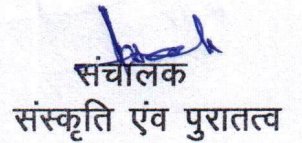 संचालक
संस्कृति एंव पुरातत्व